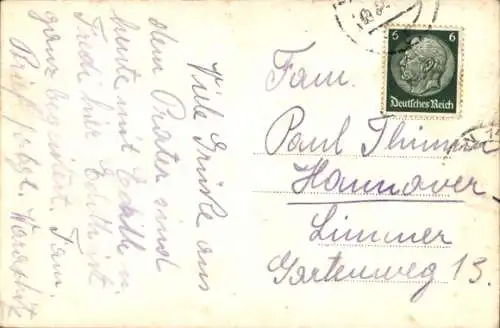 Viele Grüße aus
dem Prater send
heute mit Edith u.
Fredi hier. Edith ist
ganz begeistert. Fam.
Brief folgt.
6 6
Deutsches Reich
Fam.
Paul Thimm
Hannover
Limmer
Gartenweg 13.